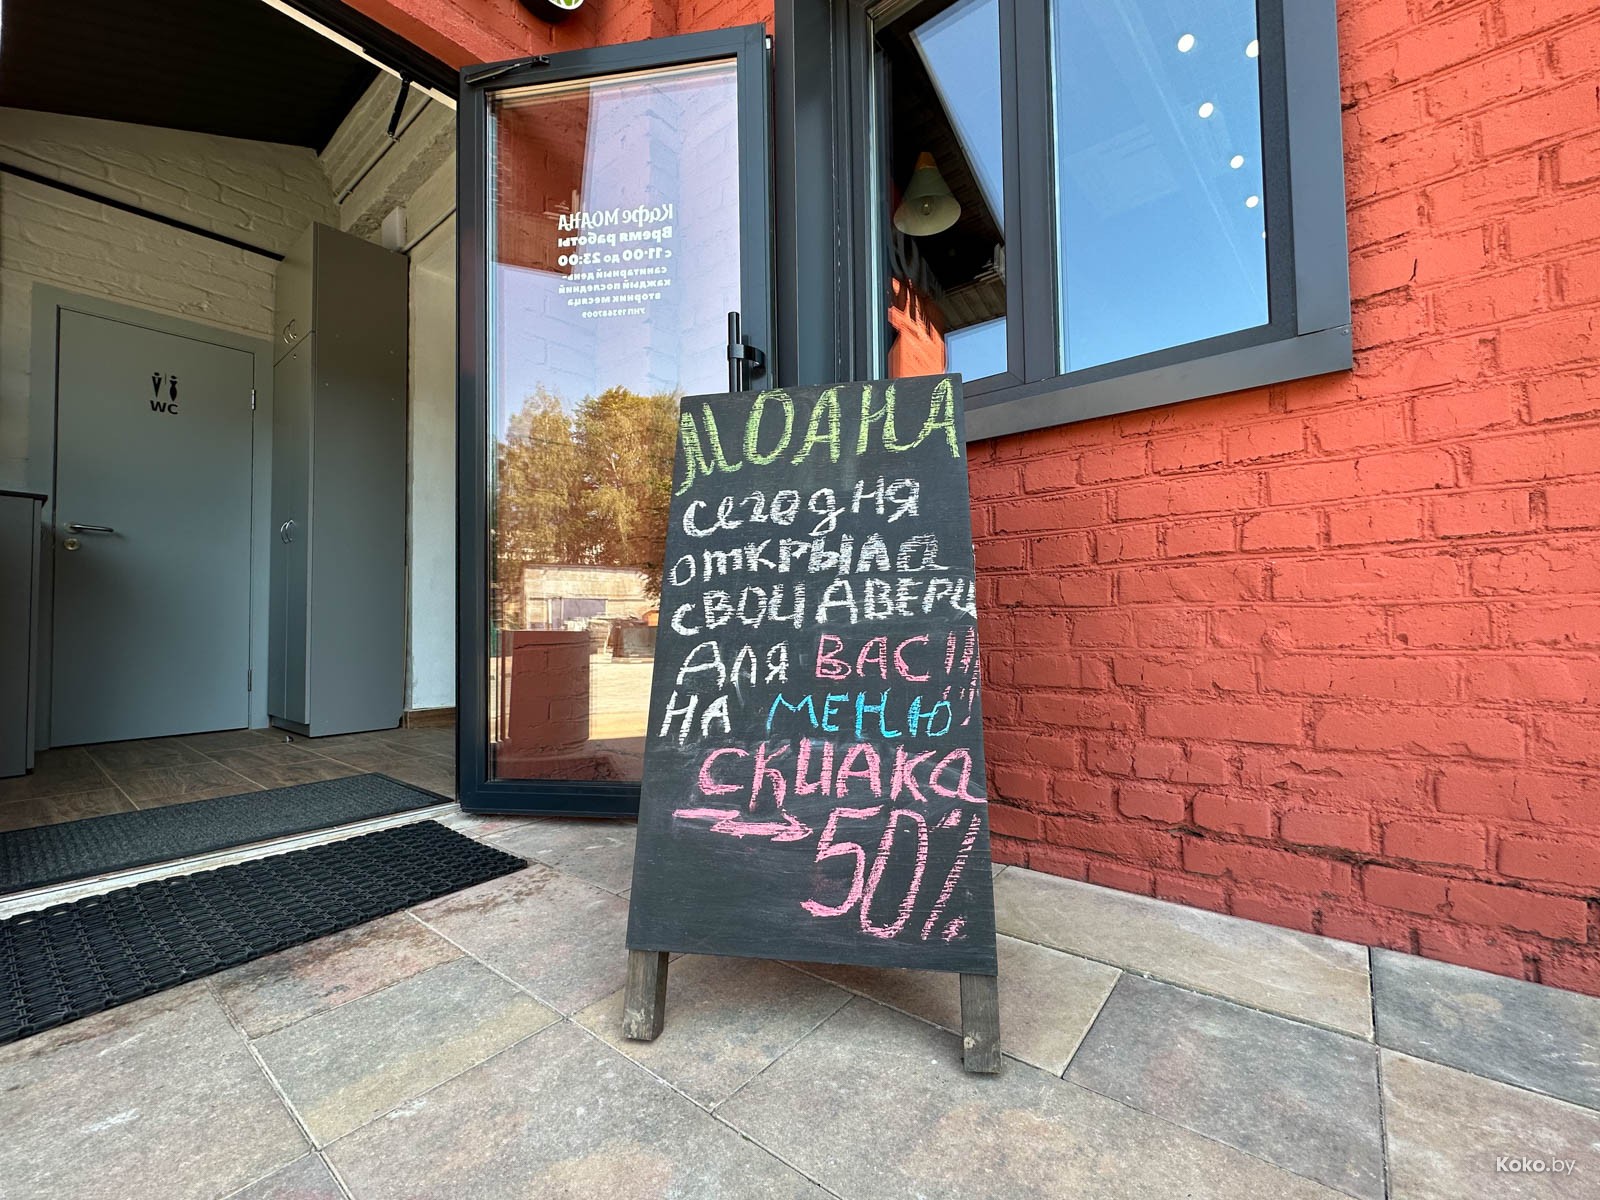 Кафе МОАНА
Время работы
с 11:00 до 23:00
санитарный день-
каждый последний
вторник месяца
УНП 193687009
WC
МОАНА
сегодня
открыла
свои двери
для ВАС!!!
НА МЕНЮ!
скидка
50%
Koko.by